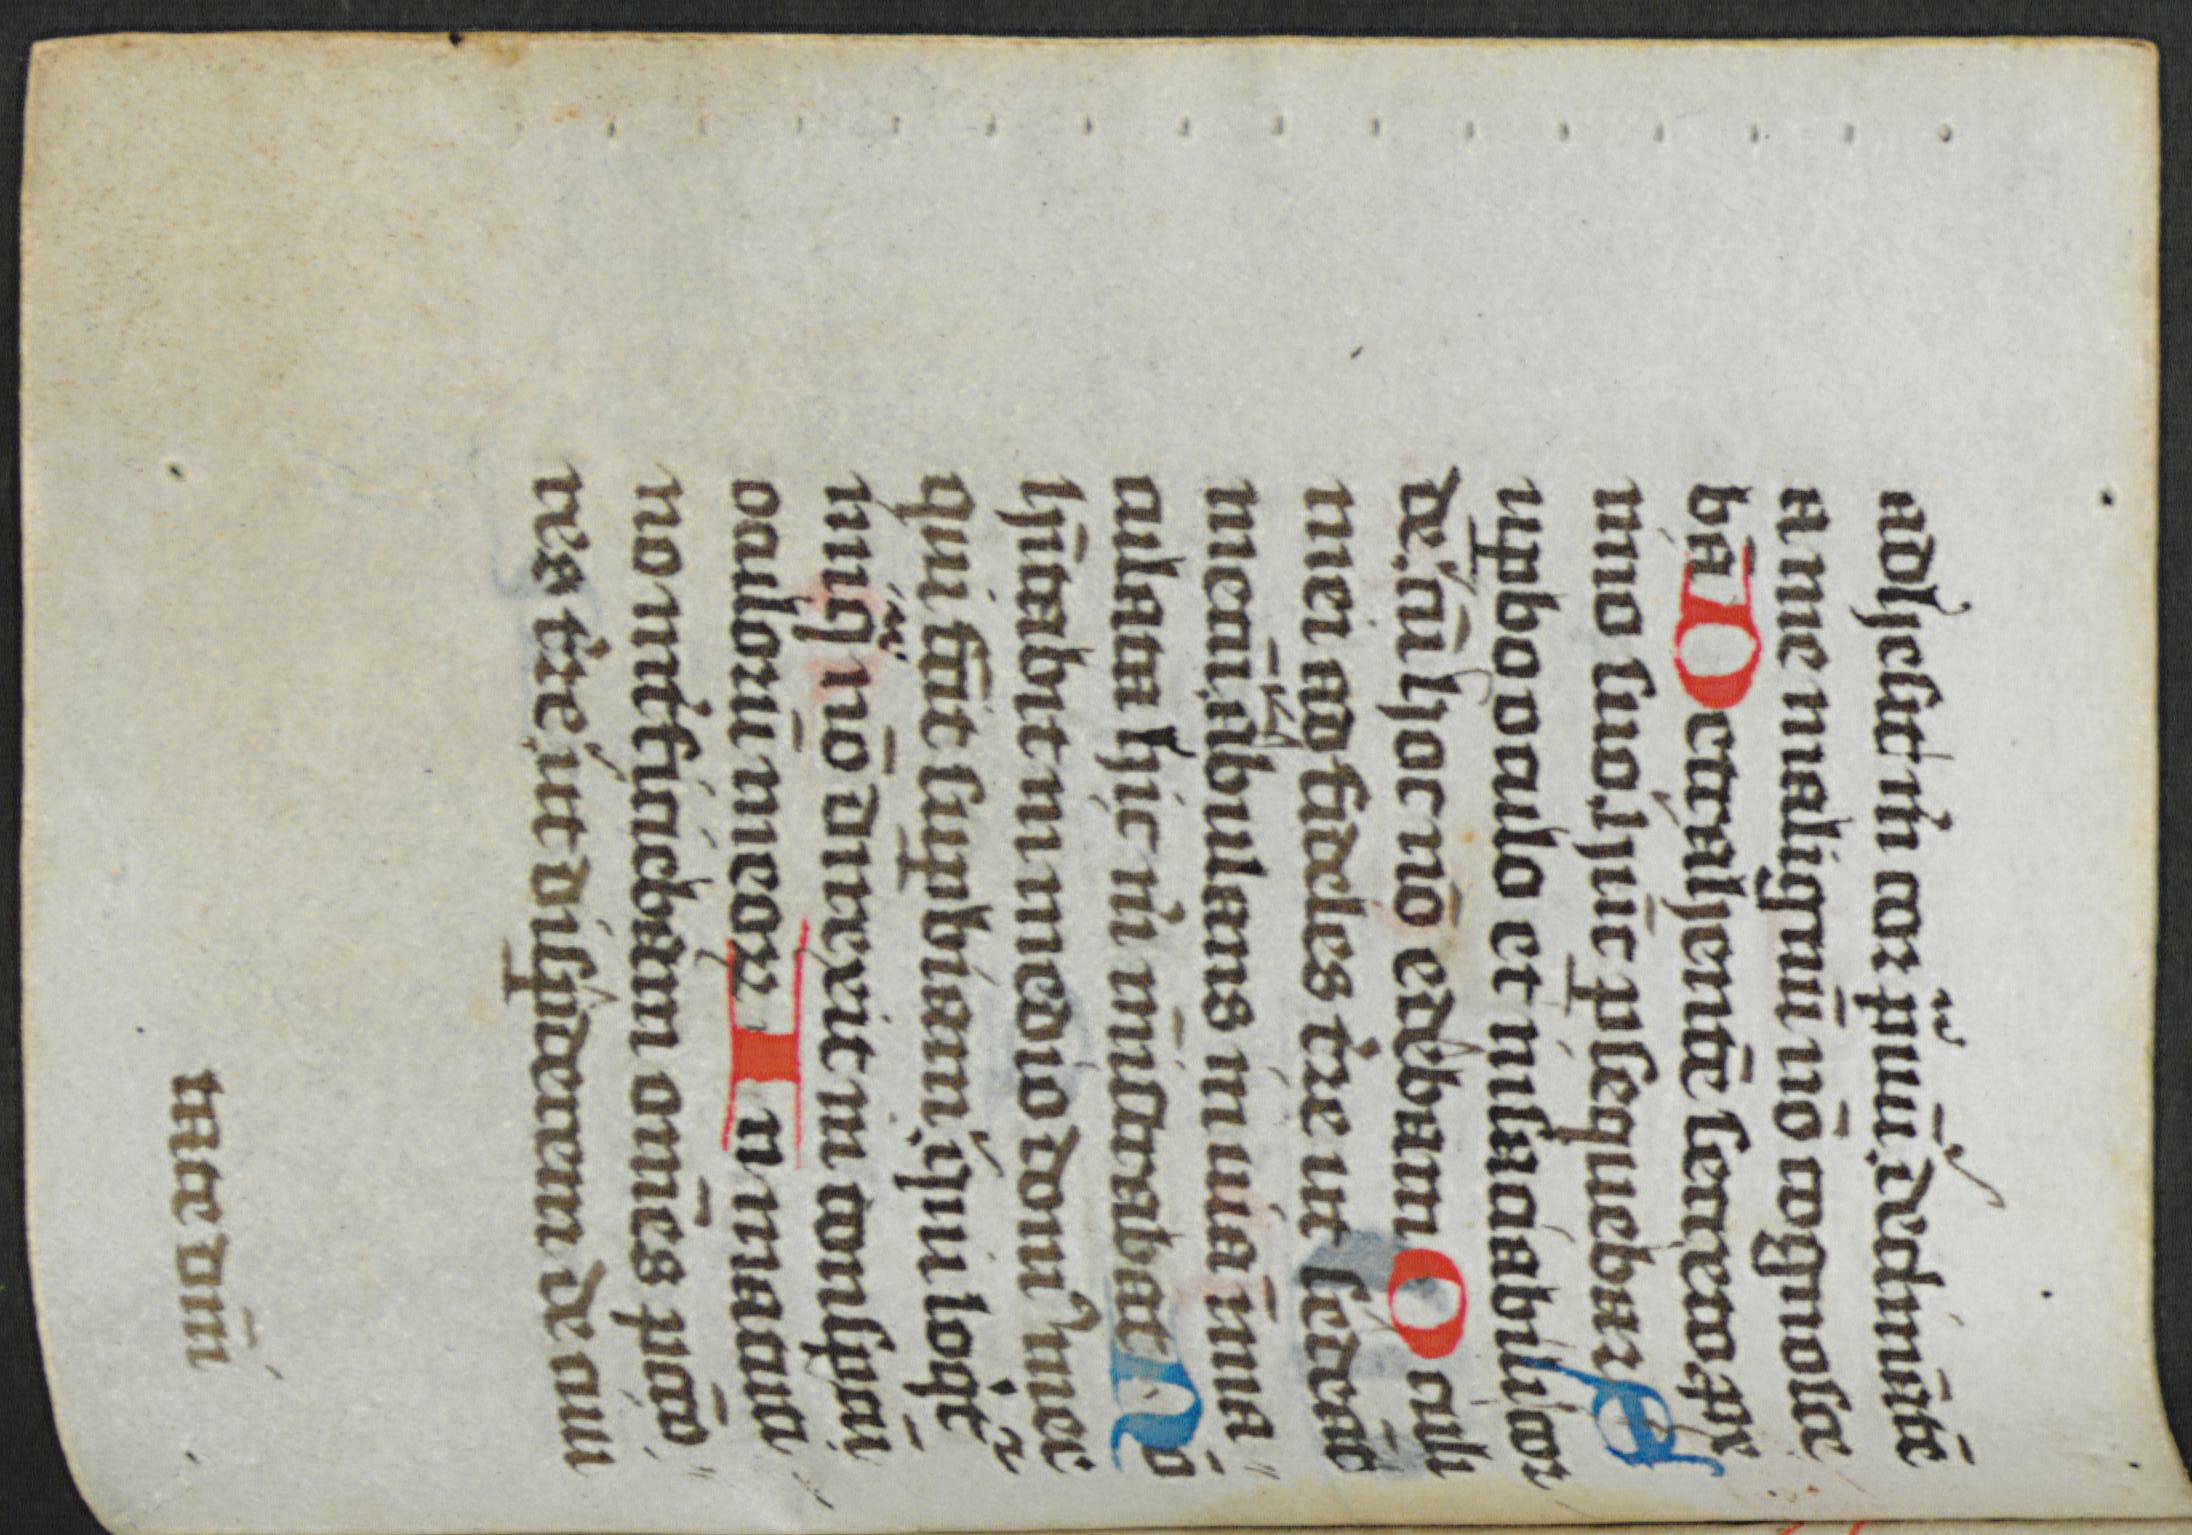 adhesit m̊ cor pͥuū. declinātē
a me malignū nō cognosce
bā Detrahentē secreto ꝓxi
mo suo. hūc ꝑsequebar S
uꝑbo oculo et insaciabili cor
de. cū hoc nō edebam Oculi
mei ad fideles t̛re ut sedeāt
mecū. ambulans in uia imma
culata hic m̊ ministrabat No
habitabit in medio domꝰ mee
qui facit suꝑbiam. qui loqͥt
iniqͣ nō direxit in conspc̄u
oculorū meoꝝ In matuti
no int̛ficiebam omēs pc̄cato
res t̛re. ut disꝑderem de ciui
tate dn̄i